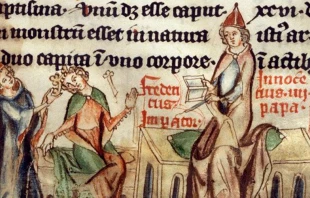 aptisma. Unū dz esse caput xxvi. d
n monstrū esset in natura istiᵉ ar
duo capita ī uno corpore. ī actib
Fredericus
Impacor.
Innoce
cius iiij
papa.